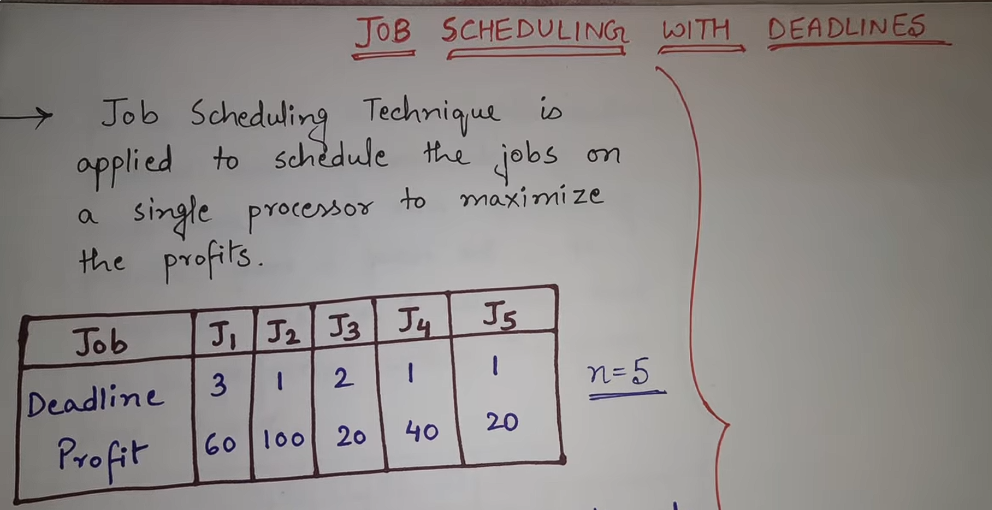 JOB SCHEDULING WITH DEADLINES
→ Job Scheduling Technique is
applied to schedule the jobs on
a single processor to maximize
the profits.
Job J1 J2 J3 J4 J5
Deadline 3 1 2 1 1
Profit 60 100 20 40 20
n=5